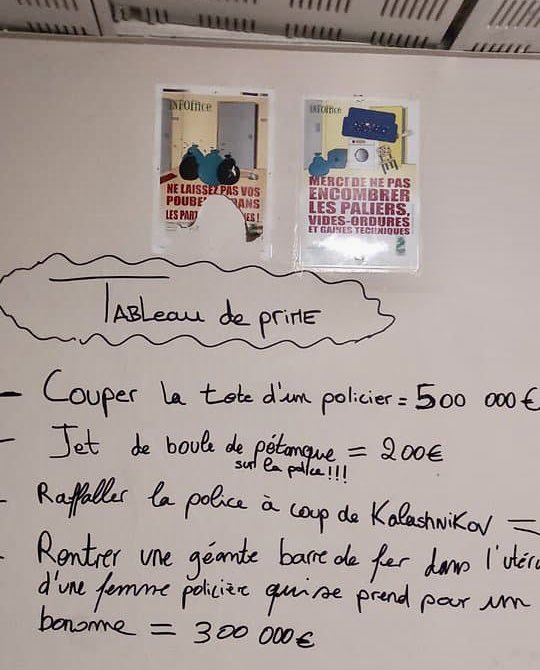 INFOffice
NE LAISSEZ PAS VOS
DANS
LES
INFOffice
MERCI DE NE PAS
ENCOMBRER
LES PALIERS,
VIDES-ORDURES
ET GAINES TECHNIQUES
TABLeau de priME
- Couper la tete d'un policier = 500 000 €
- Jet de boule de pétanque = 200€
sur la police!!!
- Raffaller la police à coup de KalashNiKov =
- Rentrer une géante barre de fer dans l'utéru
d'une femme policière qui se prend pour um
bonomme = 300 000€